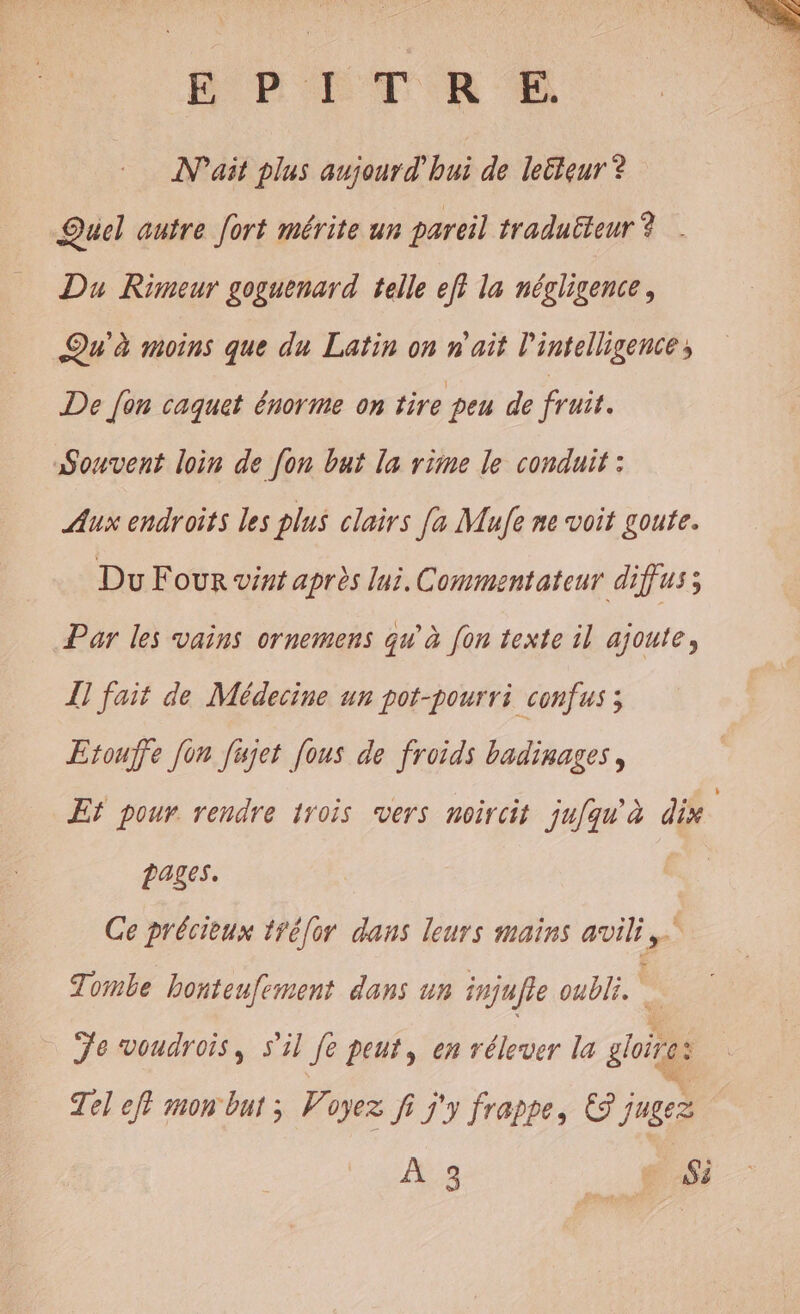 EPITRE.
N'ait plus aujourd'hui de lecteur?
Quel autre ſort mérite un pareil traducteur?
Du Rimeur goguenard telle eſt la négligence,
Qu'à moins que du Latin on n'ait l'intelligence,
De ſon caquet énorme on tire peu de fruit.
Souvent loin de ſon but la rime le conduit:
Aux endroits les plus clairs ſa Muſe ne voit goute.
Du Four vint après lui. Commentateur diffus;
Par les vains ornemens qu'à ſon texte il ajoute,
Il fait de Médecine un pot-pourri confus;
Etouffe ſon ſujet ſous de froids badinages,
Et pour rendre trois vers noircit juſqu'à dix
pages.
Ce précieux tréſor dans leurs mains avili,
Tombe honteuſement dans un injuſte oubli.
Je voudrois, s'il ſe peut, en rélever la gloire:
Tel eſt mon but; Voyez ſi j'y frappe, & jugez
A 3 Si